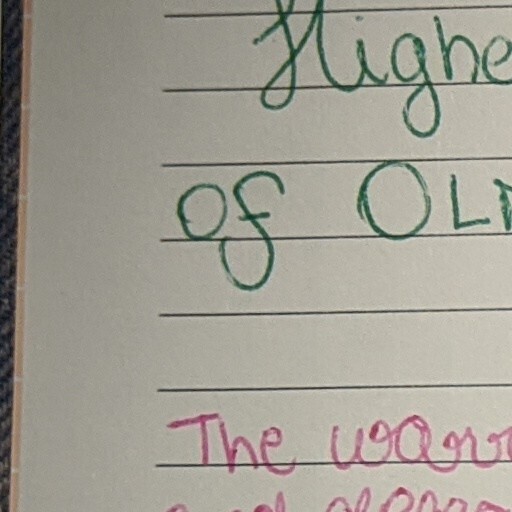 Highe
of OLI
The warr
and